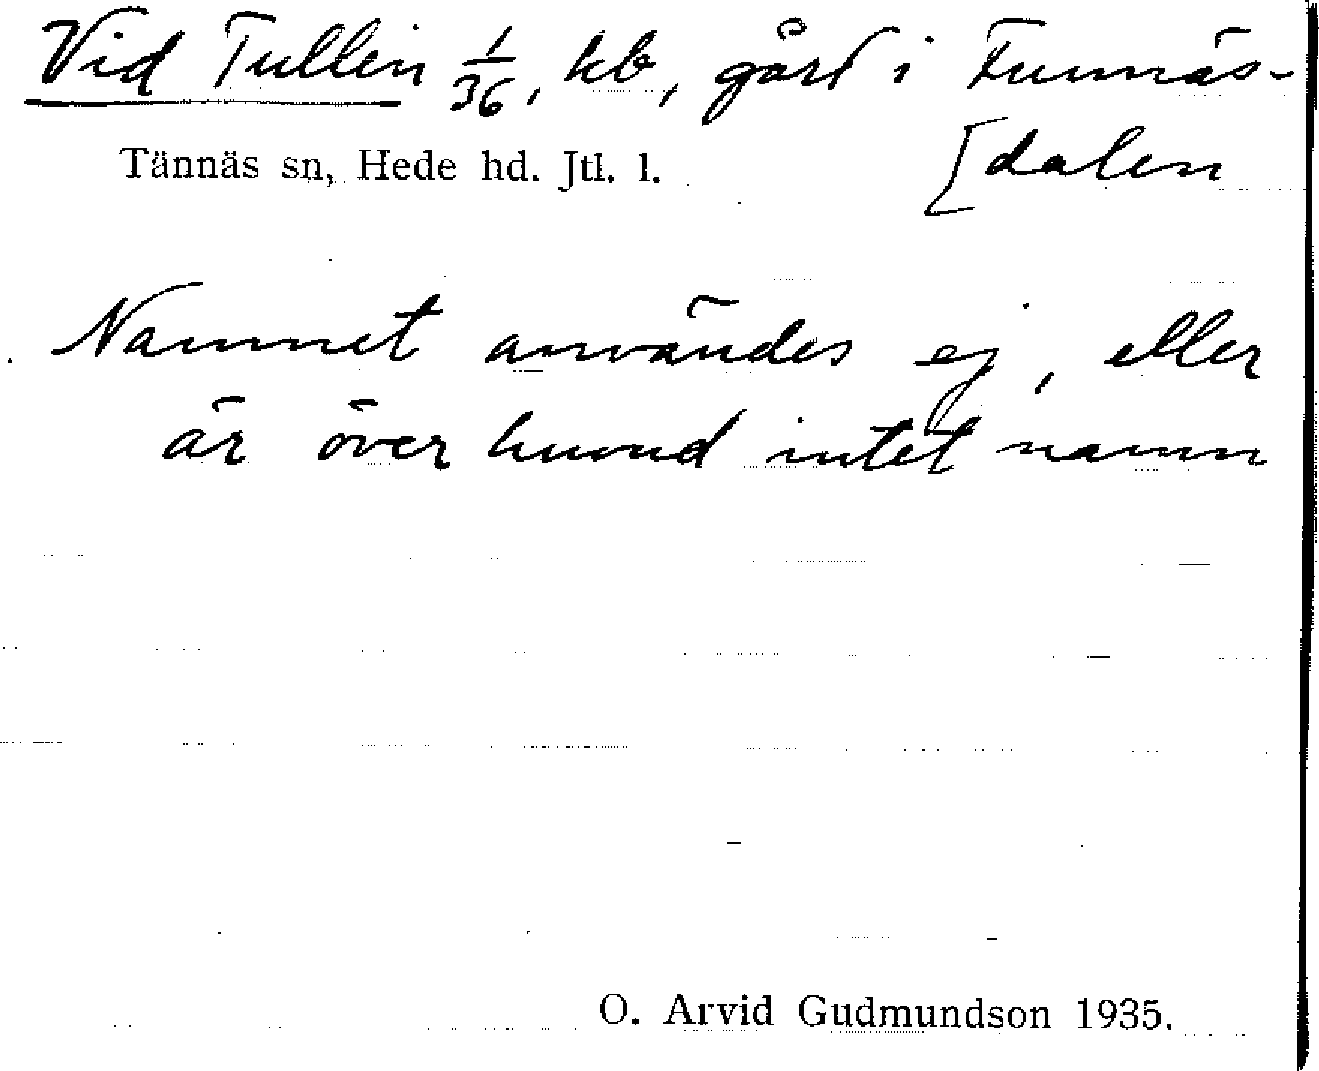 Vid Tullen 1/36, kb, gård i Funnäs-
[dalen
Tännäs sn, Hede hd. Jtl. l.
Namnet användes ej, eller
är över huvud intet namn
O. Arvid Gudmundson 1935.